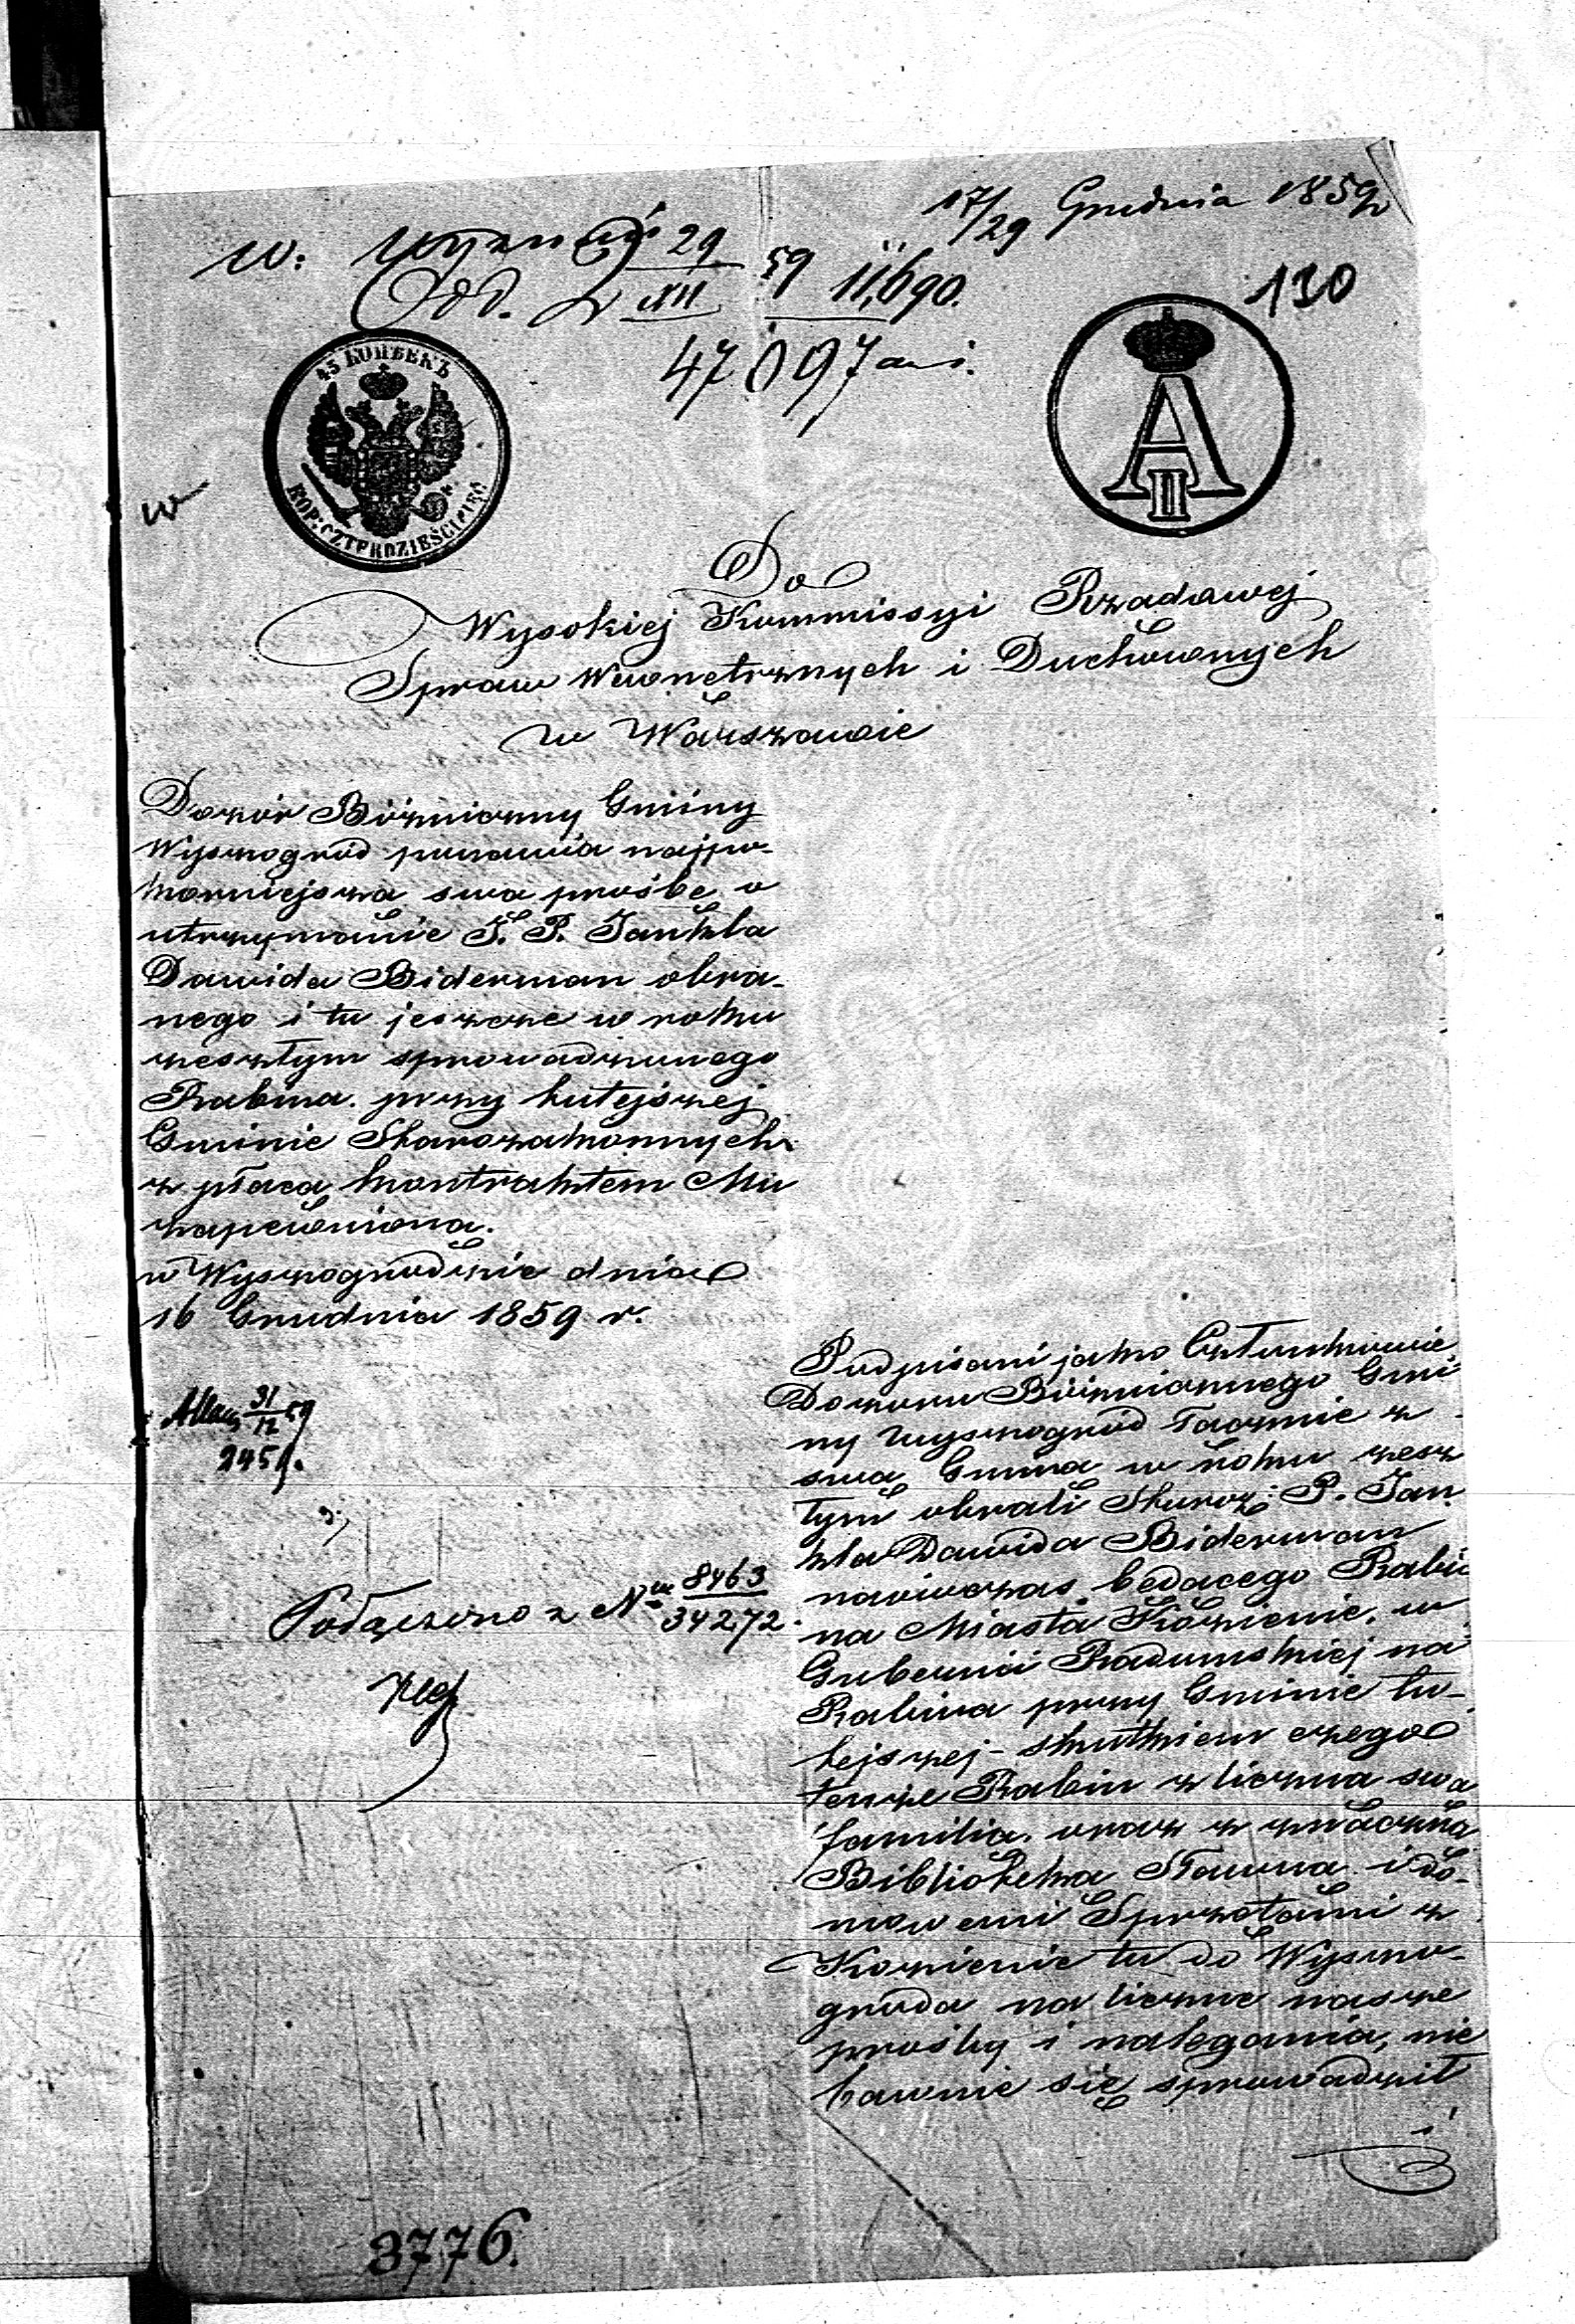 17/29 Grudnia 1859 r
W. Wyzn 29
Od. XII 59 11,690.
130
47097
45 КОПѢЕКЪ
KOP: CZTERDZIEŚCI PIĘĆ
A II
w
Do
Wysokiej Kommissyi Rządowej
Spraw Wewnętrznych i Duchownych
w Warszawie
Dozór Bóżniczny Gminy
Wyszogród ponawia najpo-
korniejszą swą prośbę o
utrzymanie S. P. Jankla
Dawida Biderman obra-
nego i tu jeszcze w roku
zeszłym sprowadzonego
Rabina przy tutejszej
Gminie Starozakonnych
z płacą kontraktem Mu
zapewnioną.
w Wyszogrodzie dnia
16 Grudnia 1859 r.
31/12 59
2459.
Połączono z Nrm 8463
34272
Podpisani jako Członkowie
Dozoru Bóżnicznego Gmi-
ny Wyszogród łącznie z
swą Gminą w roku zesz
łym obrali Staroz: P. Jan
kla Dawida Biderman
nówczas będącego Rabi
na Miasta Kozienic, w
Gubernii Radomskiej na
Rabina przy Gminie tu-
tejszej - skutkiem czego
tenże Rabin z liczną swą
familią, oraz z znaczną
Biblioteką Sławną i do-
mowemi Sprzętami z
Kozienic tu do Wyszo-
groda na liczne nasze
prośby i nalegania, nie
bawnie się sprowadził
i
3776.